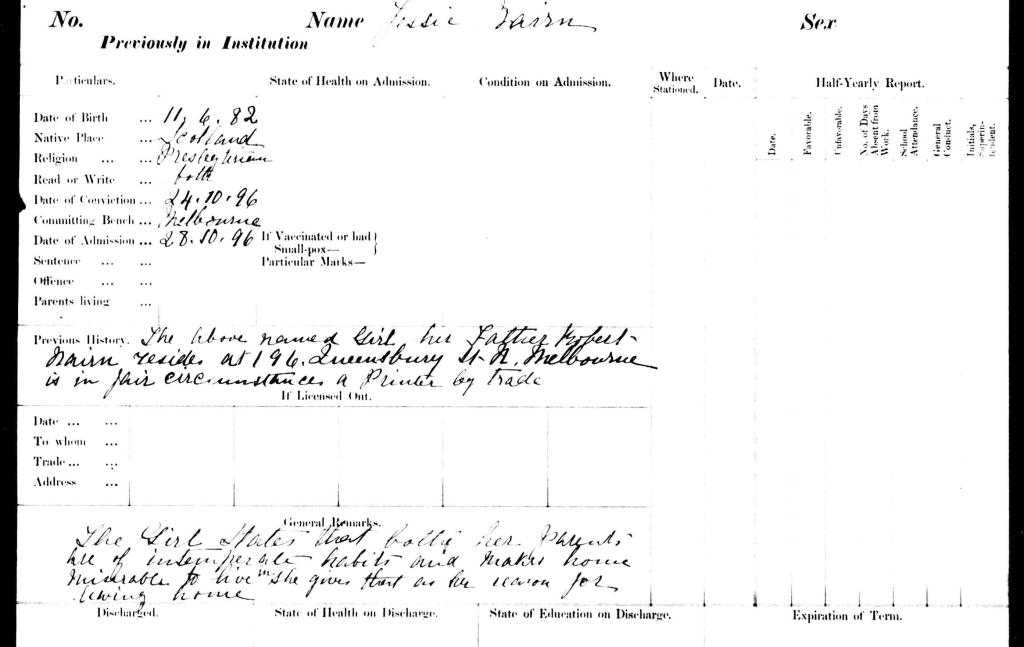 No. Name Jessie Nairn Sex
Previously in Institution
Particulars. State of Health on Admission. Condition on Admission. Where Stationed. Date. Half-Yearly Report.
Date. Favorable. Unfavorable. No. of Days Absent from Work. School Attendance. General Conduct. Initials, Superintendent.
Date of Birth ... 11.6.82
Native Place ... Scotland
Religion ... ... Presbyterian
Read or Write ... both
Date of Conviction ... 24.10.96
Committing Bench ... Melbourne
Date of Admission ... 28.10.96 If Vaccinated or had
Small-pox—
Sentence ... ... Particular Marks—
Offence ... ...
Parents living ...
Previous History. The above named Girl, her Father Robert
Nairn resides at 196. Queensbury St N. Melbourne
is in fair circumstances a Printer by trade
If Licensed Out.
Date ... ...
To whom ...
Trade ... ...
Address ...
General Remarks.
The Girl States that both her Parents
are of intemperate habits and makes home
miserable to live in She gives that as her reason for
leaving home
Discharged. State of Health on Discharge. State of Education on Discharge. Expiration of Term.